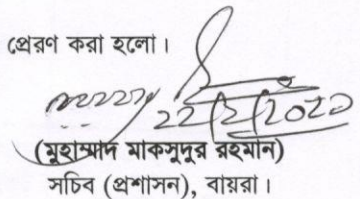 প্রেরণ করা হলো।
(মুহাম্মাদ মাকসুদুর রহমান)
সচিব (প্রশাসন), বায়রা।